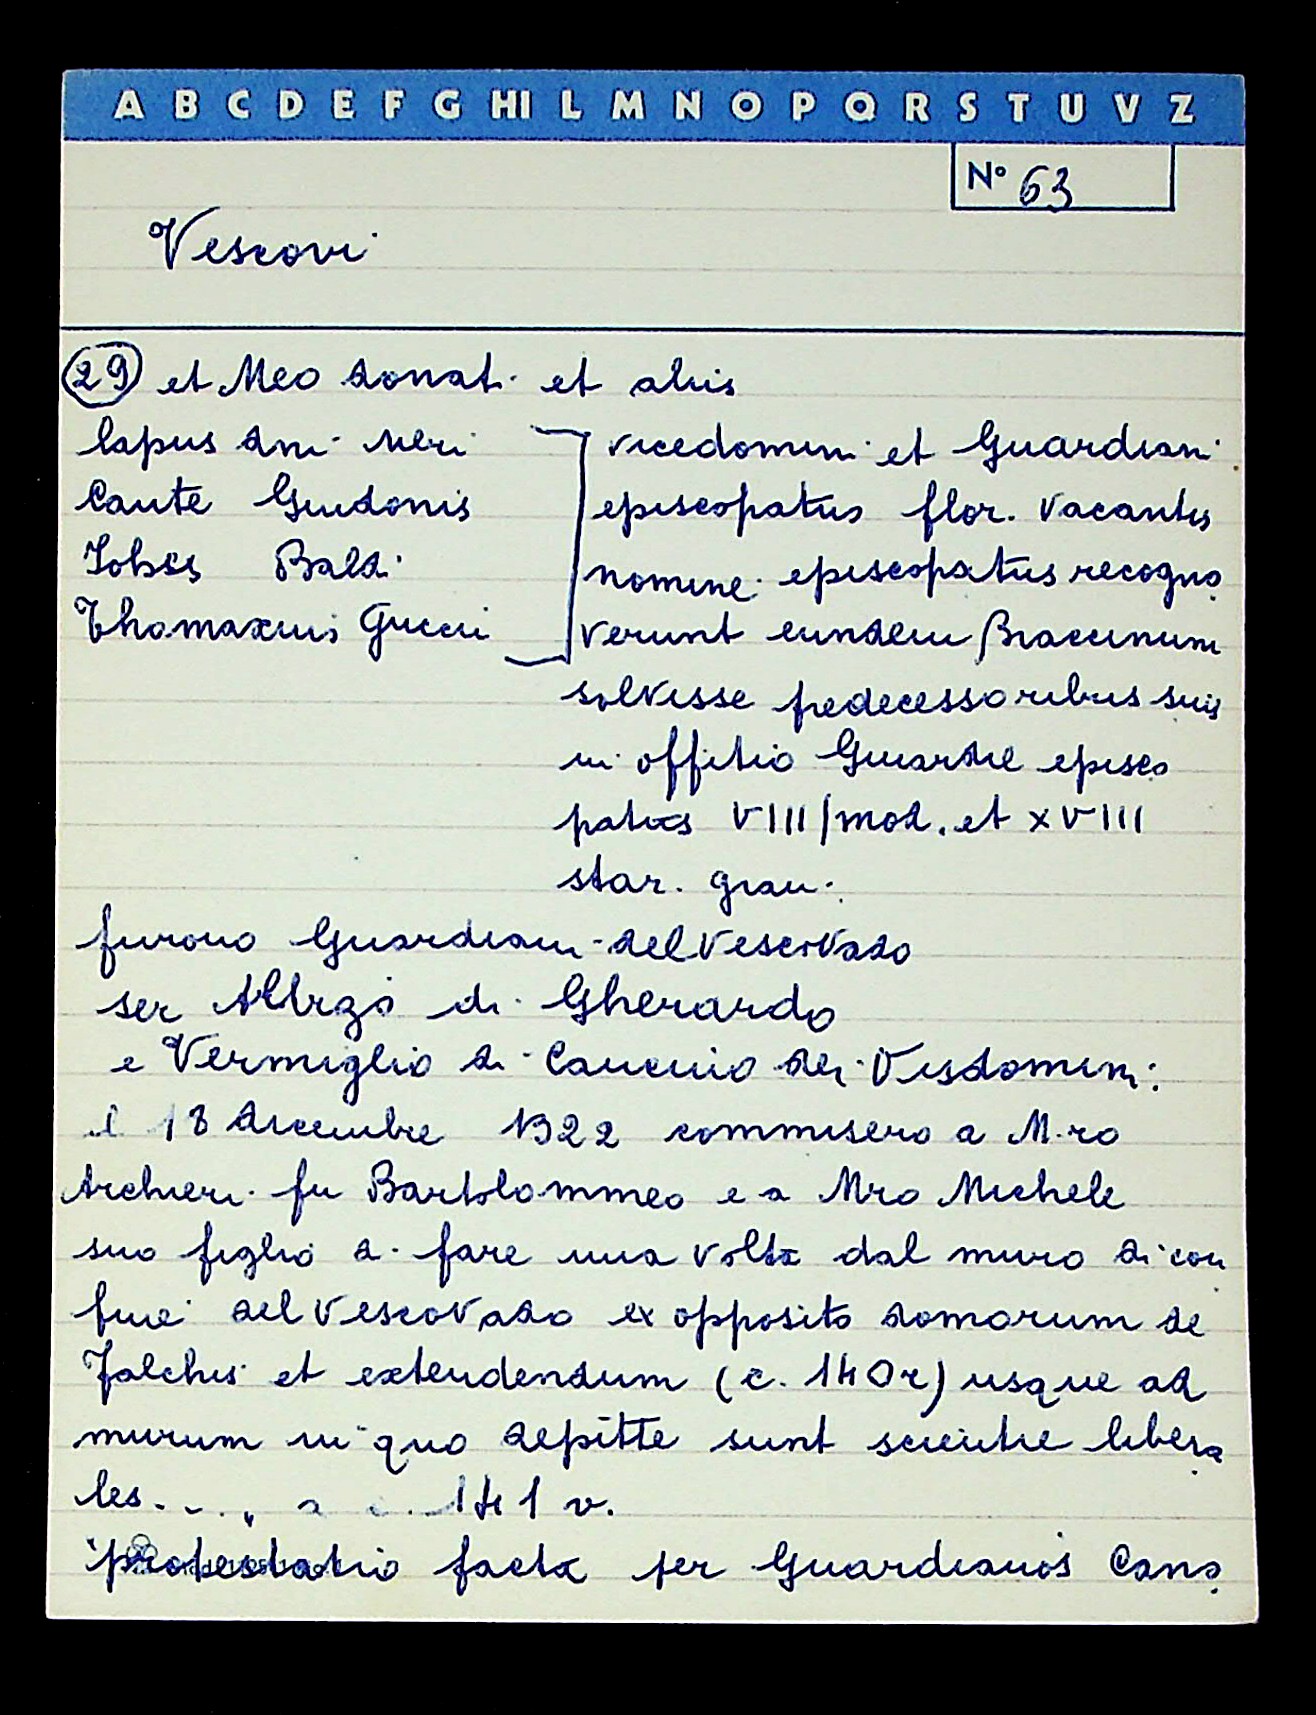 A B C D E F G HI L M N O P Q R S T U V Z
N° 63
Vescovi
29 et Meo donat. et aliis
lapus dni Neri
Cante Guidonis
Iohes Baldi
Thomaxius Gucci
vicedomini et Guardiani
episcopatus flor. vacantis
nomine episcopatus recogno
verunt eundem Braccinum
solvisse predecessoribus suis
in offitio Guardie episco
patus VIII/mod. et XVIII
star. gran.
furono Guardiani del Vescovado
ser Albizo di Gherardo
e Vermiglio di Caneuio dei Visdomini:
il 18 dicembre 1322 commisero a M.ro
Archieri fu Bartolommeo e a Mro Michele
suo figlio di fare una volta dal muro di con
fine del Vescovado ex opposito domorum de
Falchis et extendendum (c. 140r) usque ad
murum in quo depitte sunt scientie libera
les. . . " a c. 141 v.
protestatio facta per Guardianos Cano